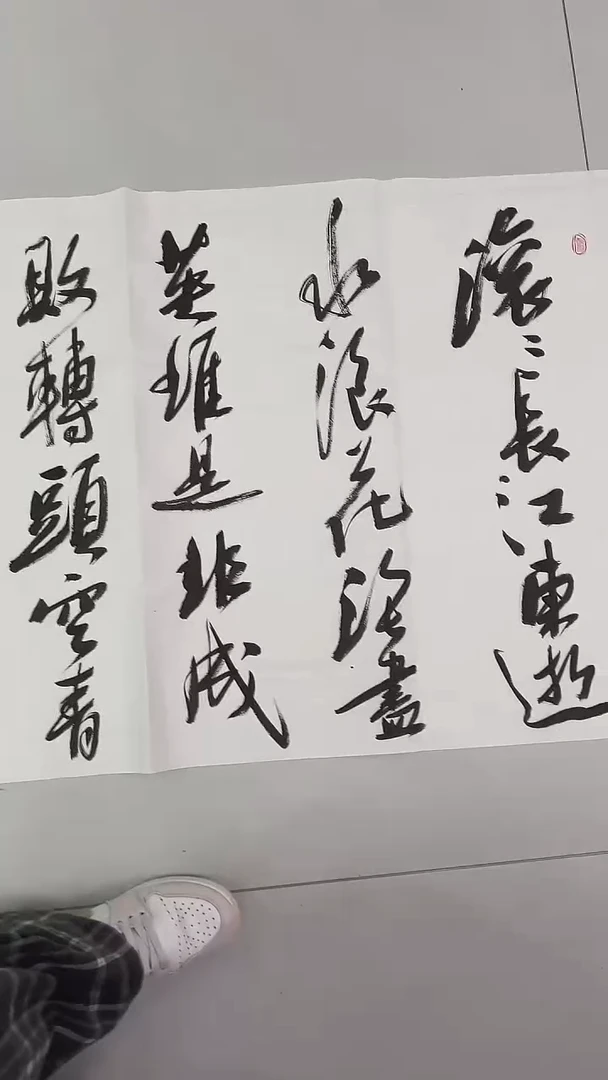 滾〻長江東逝
水浪花淘盡
英雄是非成
敗轉頭空青